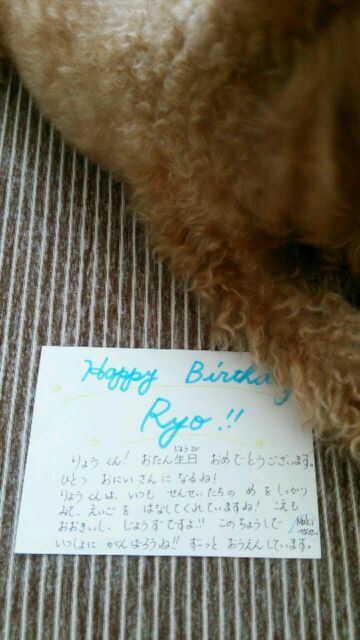 Happy Birthday
Ryo!!
りょうくん! おたん生日 おめでとうございます。
じょうび
ひとつ おにいさんに なるね!
りょうくんは、いつも せんせいたちの めを しっかり
みて、えいごを はなしてくれていますね! こえも
おおきいし、じょうずですよ!! このちょうしで
いっしょに がんばろうね!! ずーっと おうえんしています。
Maki